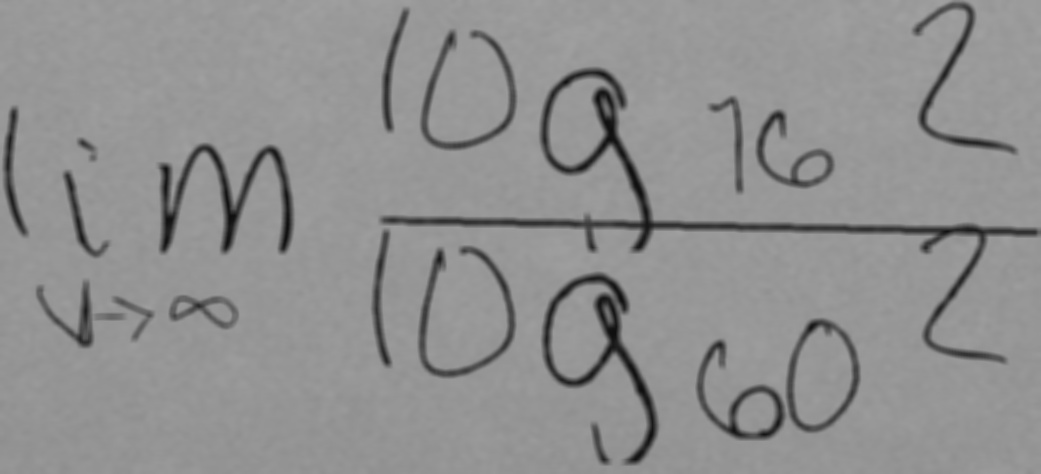 lim_{v→∞} \frac{log_{16} 2}{log_{60} 2}